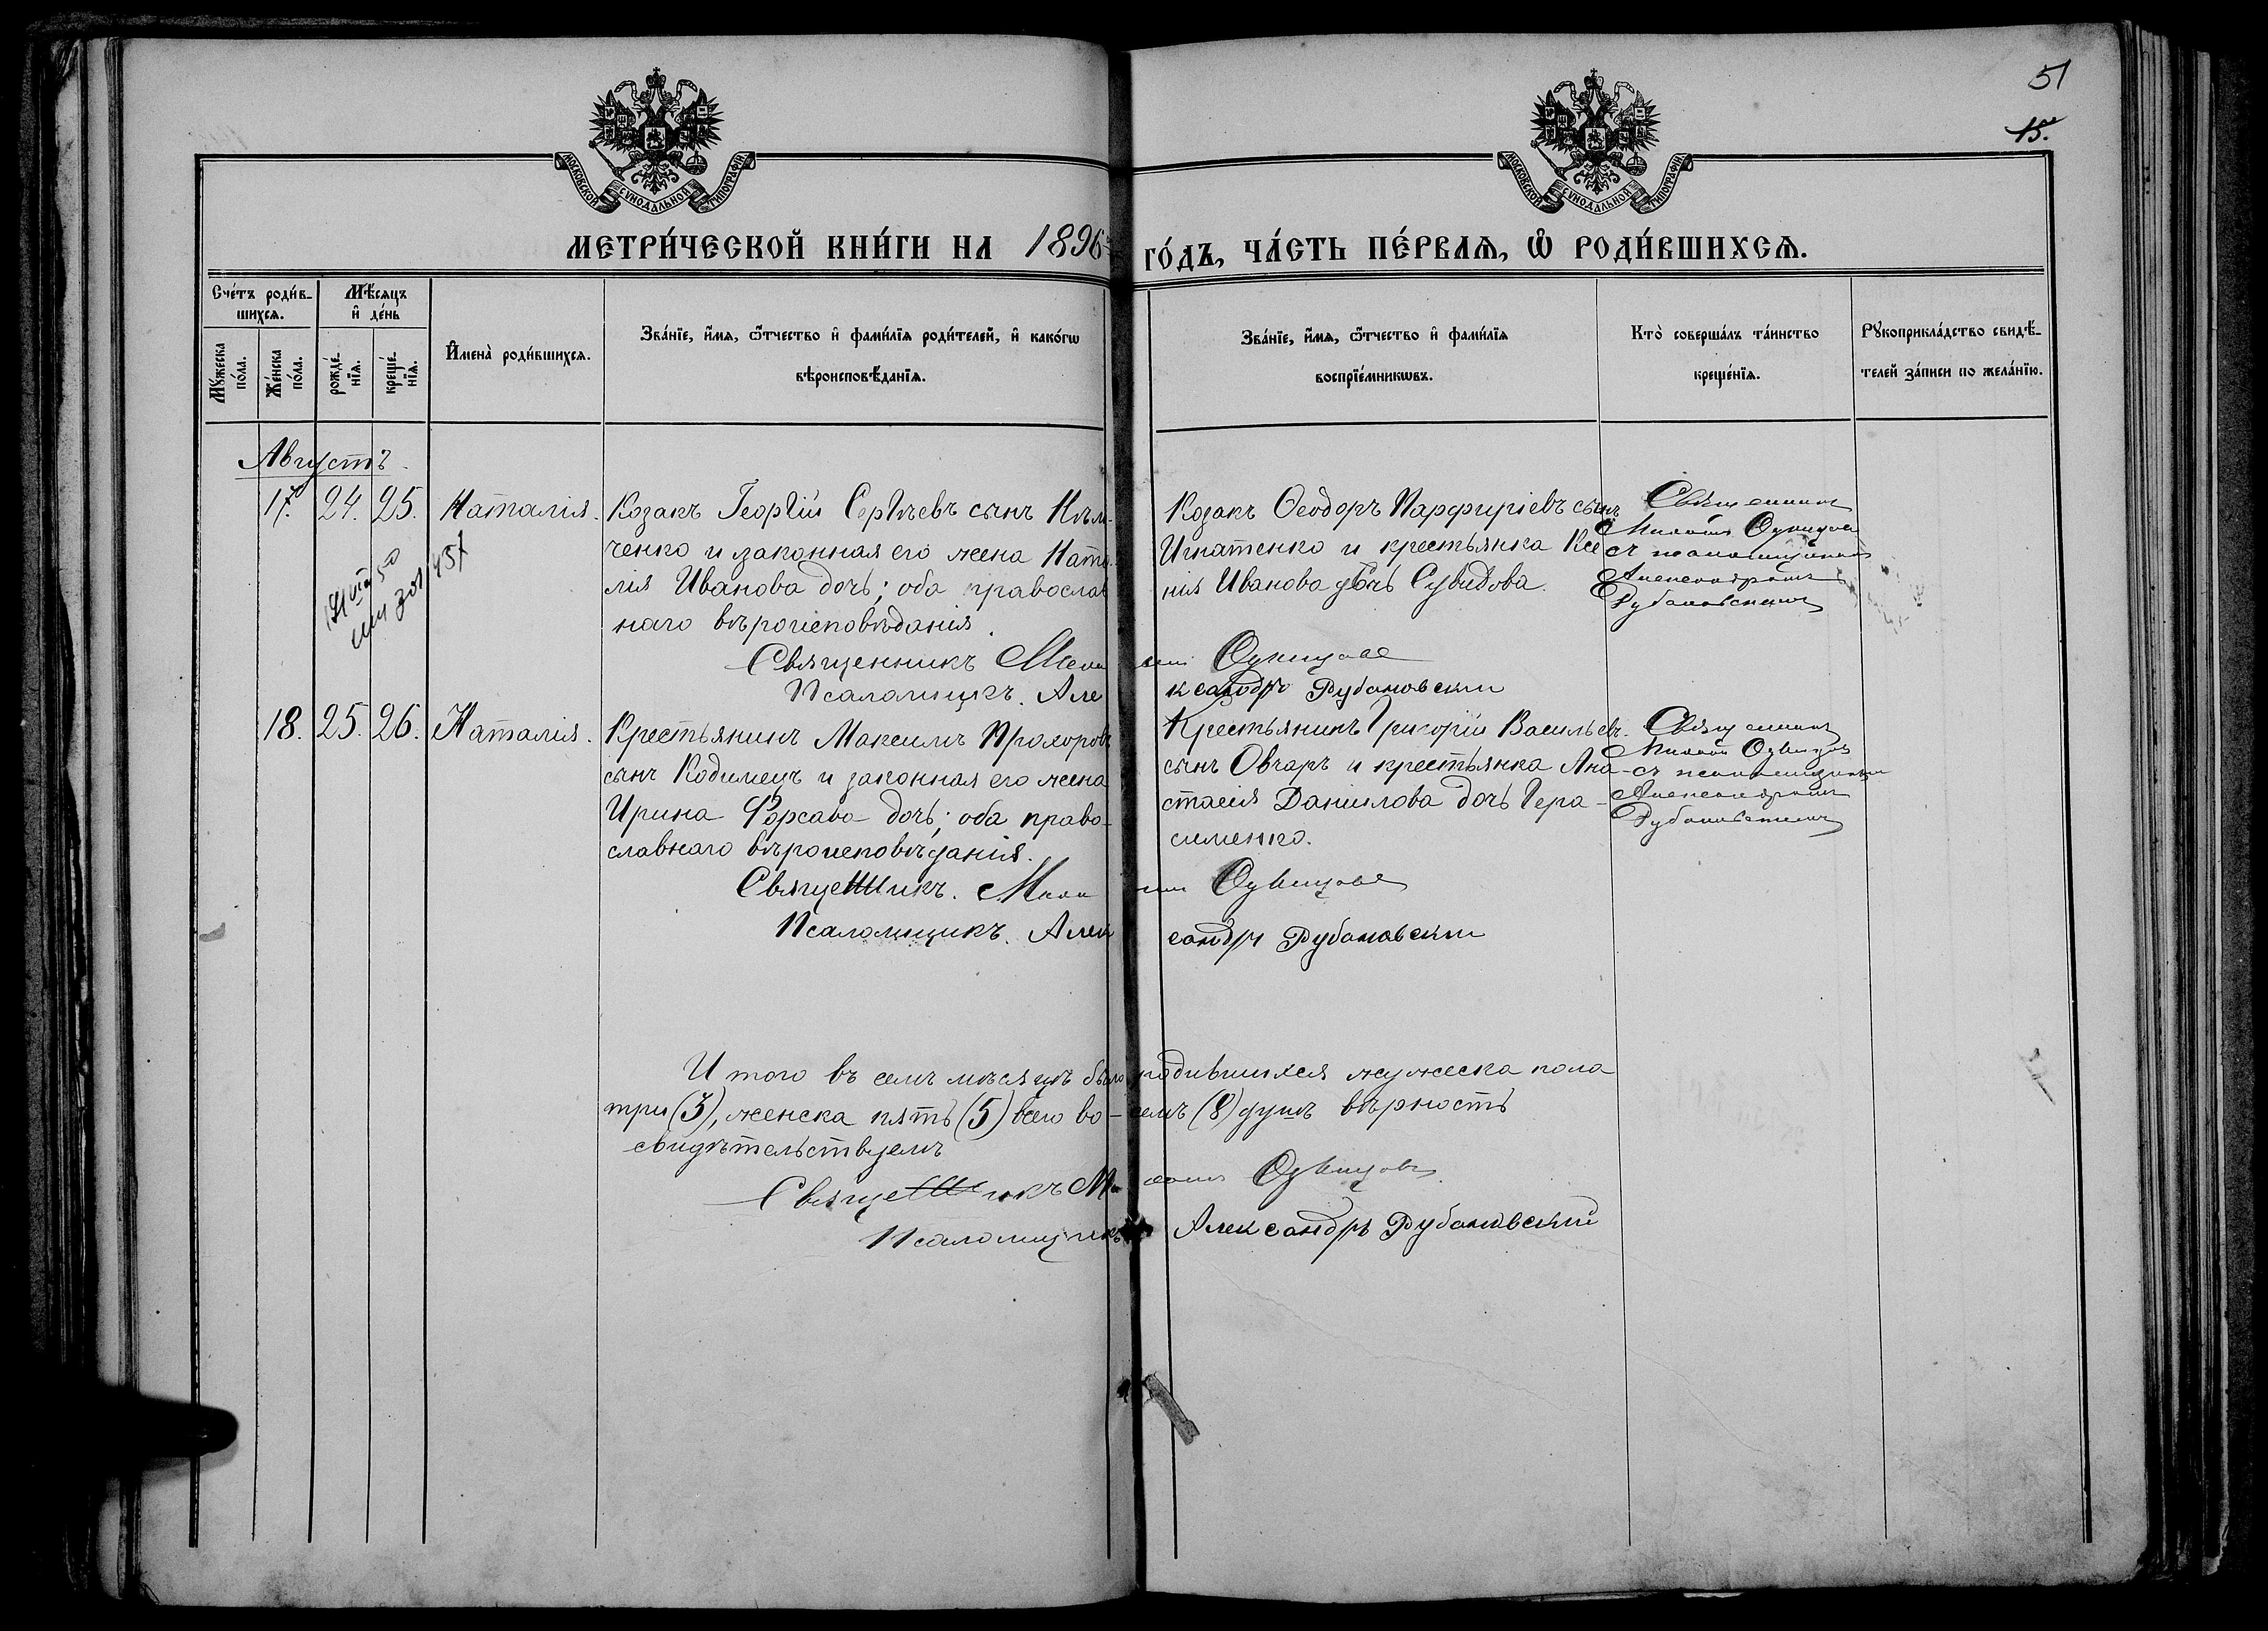 51
15.
МОСКОВСКОЙ СѴНОДАЛЬНОЙ ТИПОГРАФІИ
МОСКОВСКОЙ СѴНОДАЛЬНОЙ ТИПОГРАФІИ
МЕТРИ́ЧЕСКОЙ КНИ́ГИ НА 1896 ГО́ДЪ, ЧА́СТЬ ПЕ́РВАѦ, Ѽ РОДИ́ВШИХСѦ.
Сче́тъ роди́в-
шихсѧ.
Мѣ́сѧцъ
и҆ де́нь
Мꙋ́жеска
по́ла.
Же́нска
по́ла.
рожде́-
нїѧ.
креще́-
нїѧ.
И҆мена̀ роди́вшихсѧ.
Зва́нїе, и҆́мѧ, ѻ҆́тчество и҆ фами́лїѧ роди́телей, и҆ како́гѡ
вѣроисповѣ́данїѧ.
Зва́нїе, и҆́мѧ, ѻ҆́тчество и҆ фами́лїѧ
воспрїе́мникѡвъ.
Кто̀ соверша́лъ та́инство
креще́нїѧ.
Рꙋкоприкла́дство свидѣ́-
телей за́писи по жела́нїю.
Августъ.
17. 24. 25. Наталія. Козакъ Георгій Сергѣевъ сынъ Кльм-
ченко и законная его жена Ната-
лія Иванова дочь; оба православ
наго вѣроисповѣданія.
Козакъ Ѳеодоръ Парфиріевъ сынъ
Игнатенко и крестьянка Ксе
нія Иванова дочь Сувидова.
Священникъ
съ псаломщикомъ
Александромъ
Рубановскимъ
Священникъ
Псаломщикъ. Александръ Рубановскій
18. 25. 26. Наталія. Крестьянинъ Максимъ Прохоровъ
сынъ Кодимецъ и законная его жена
Ирина Ѳирсова дочь; оба право-
славнаго вѣроисповѣданія.
Крестьянинъ Григорій Васильевъ
сынъ Овчаръ и крестьянка Ана-
стасія Даниилова дочь Гера-
сименко.
Священникъ
съ псаломщикомъ
Александромъ
Рубановскимъ
Священникъ.
Псаломщикъ. Александръ Рубановскій
Итого въ семъ мѣсяцѣ было родившихся мужеска пола
три (3), женска пять (5) всего во-семь (8) душъ вѣрность
свидѣтельствуемъ
Священникъ
Псаломщикъ Александръ Рубановскій